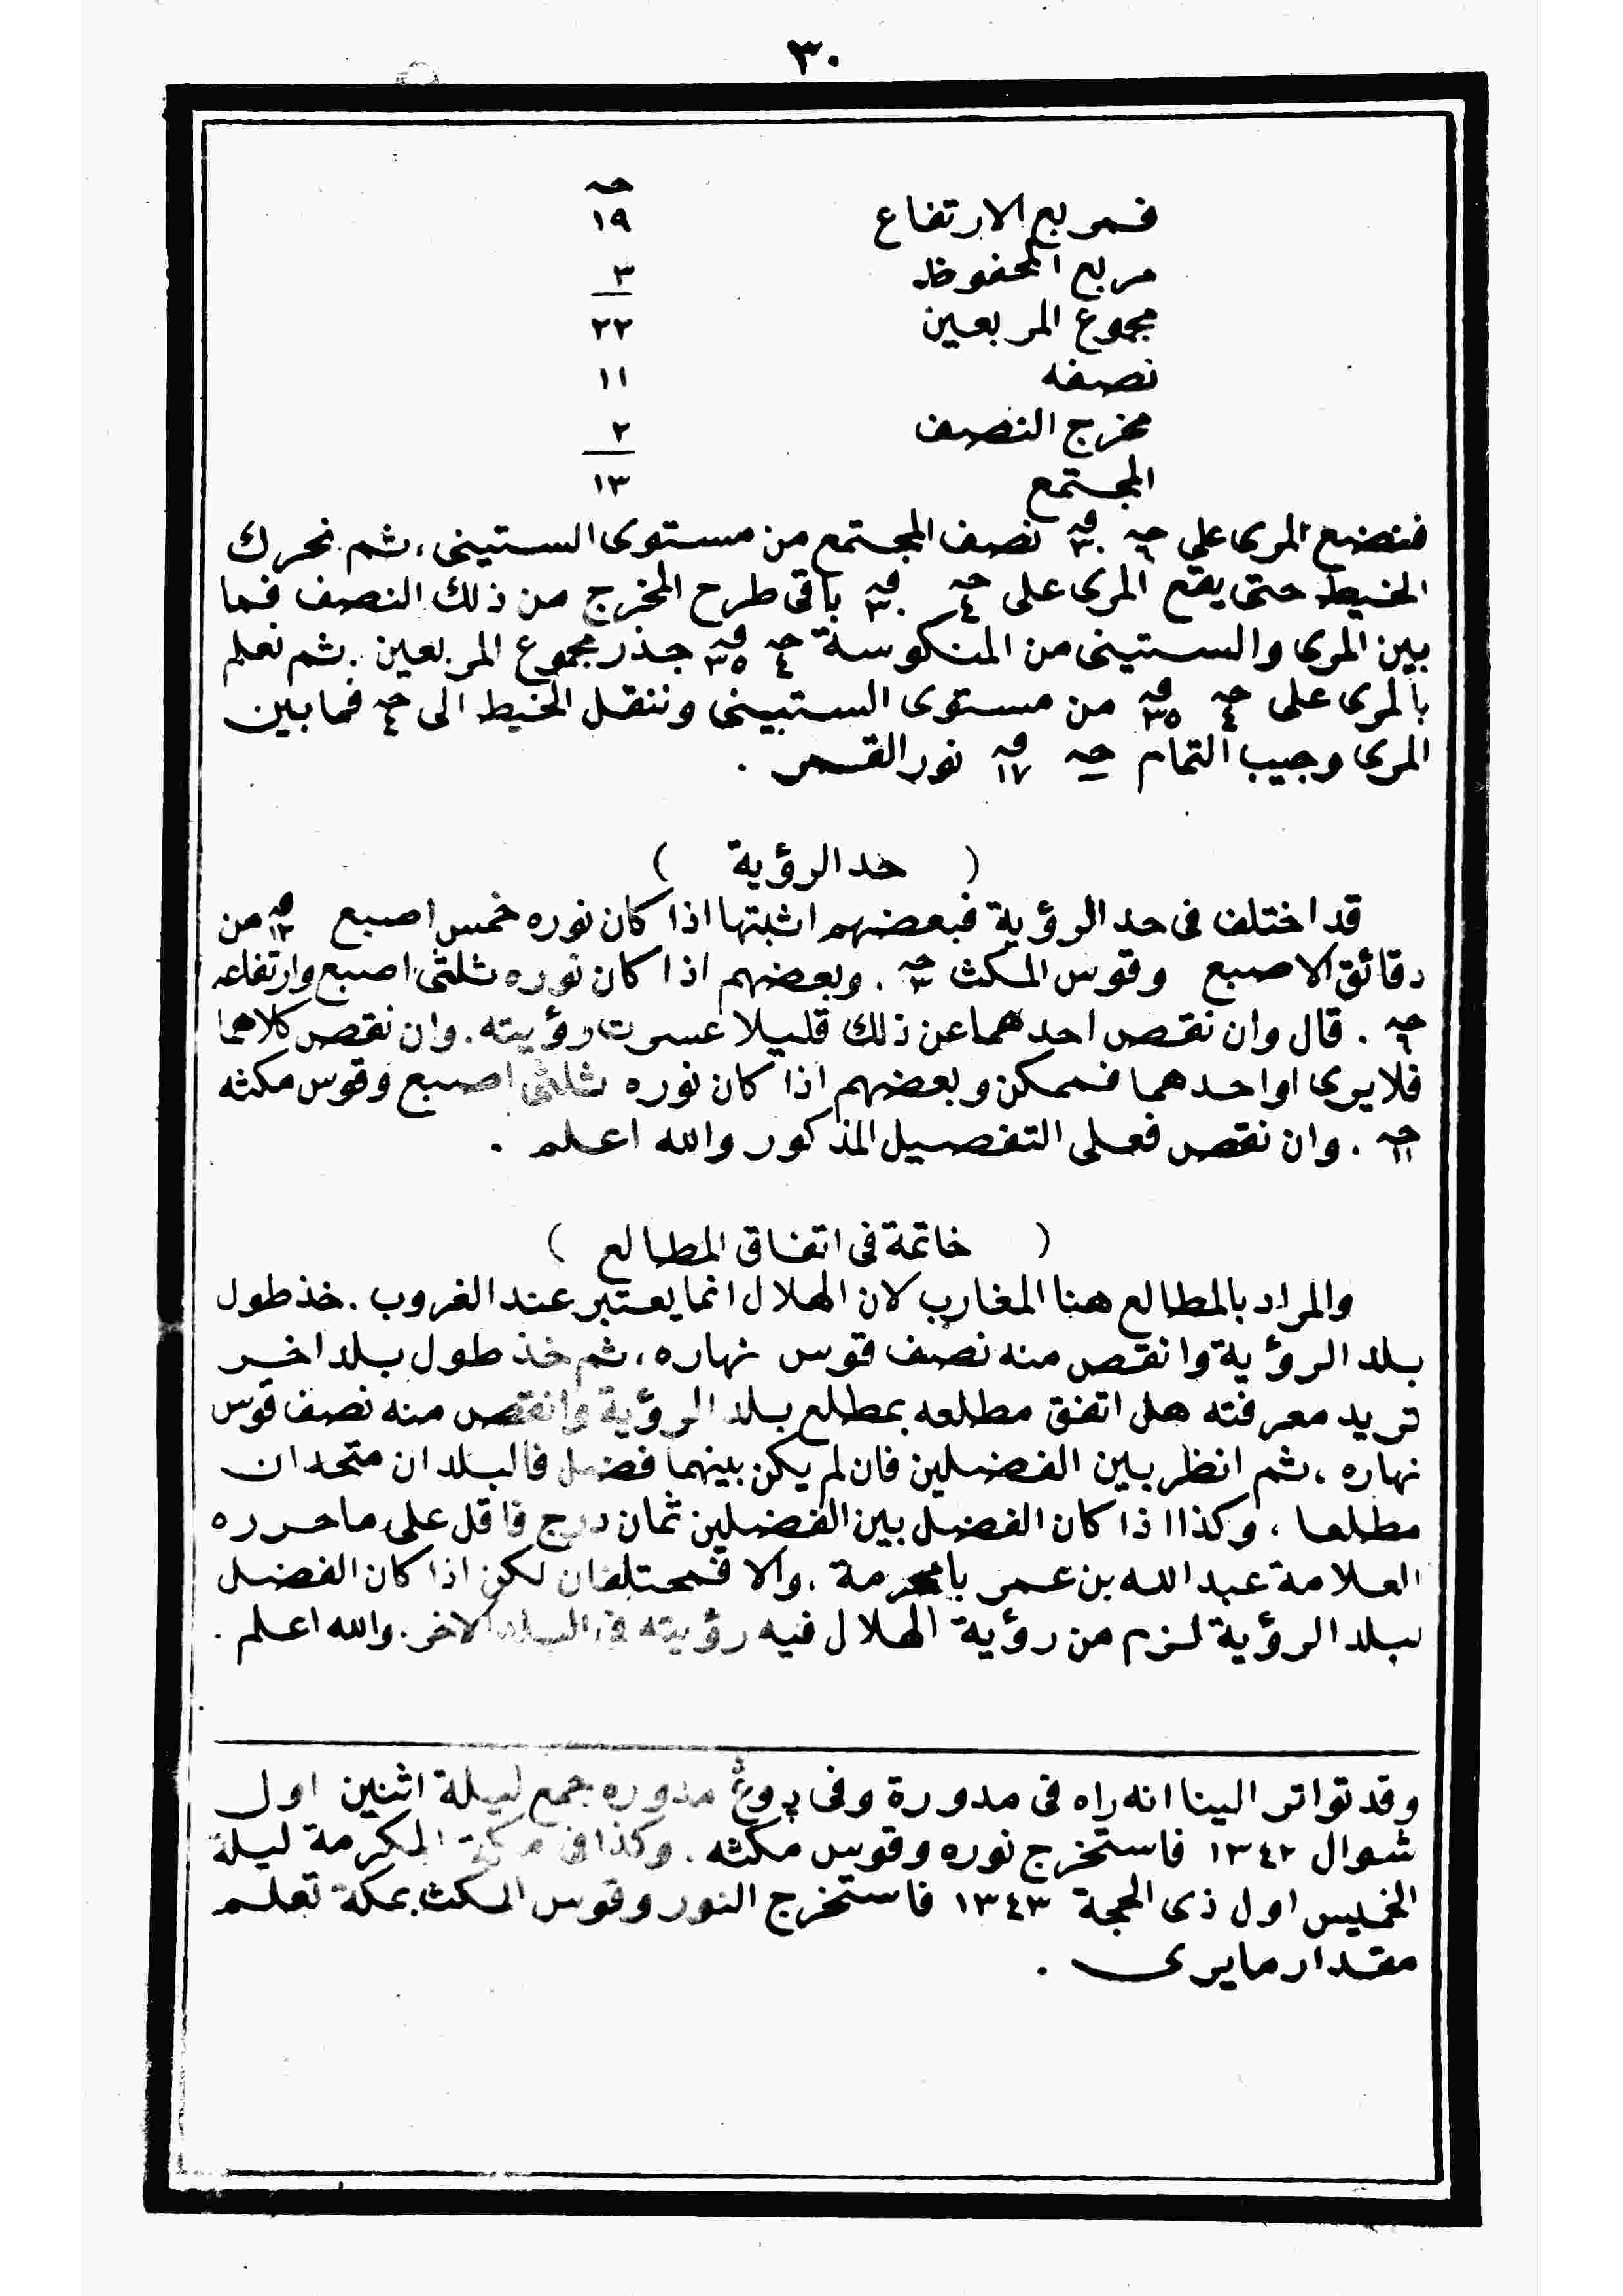 ٣٠
فمربع الارتفاع حه ١٩
مربع المحفوظ ٣
مجموع المربعين ٢٢
نصفه ١١
مخرج النصف ٢
المجتمع ١٣
فنضع المرى على حه ٦ قه ٣٠ نصف المجتمع من مستوى الستينى، ثم نحرك
الخيط حتى يقع المرى على حه ٤ قه ٣٠ باقى طرح المخرج من ذلك النصف فما
بين المرى والستينى من المنكوسة حه ٤ قه ٣٥ جذر مجموع المربعين. ثم نعلم
بالمرى على حه ٤ قه ٣٥ من مستوى الستينى وننقل الخيط الى حه ٤ فما بين
المرى وجيب التمام حه ـ قه ١٧ نور القمر .
( حد الرؤية )
قد اختلف فى حد الرؤية فبعضهم اثبتها اذا كان نوره خمس اصبع قه ١٢ من
دقائق الاصبع وقوس المكث حه ٣ . وبعضهم اذا كان نوره ثلثى اصبع وارتفاعه
حه ٦ . قال وان نقص احدهما عن ذلك قليلا عسرت رؤيته. وان نقص كلاهما
فلا يرى او احدهما فممكن وبعضهم اذا كان نوره ثلثى اصبع وقوس مكثه
حه ١١ . وان نقص فعلى التفصيل المذكور والله اعلم .
( خاتمة فى اتفاق المطالع )
والمراد بالمطالع هنا المغارب لان الهلال انما يعتبر عند الغروب . خذ طول
بلد الرؤية وانقص منه نصف قوس نهاره، ثم خذ طول بلد اخر
تريد معرفته هل اتفق مطلعه بمطلع بلد الرؤية وانقص منه نصف قوس
نهاره ، ثم انظر بين الفضلين فان لم يكن بينهما فضل فالبلدان متحدان
مطلعا ، وكذا اذا كان الفضل بين الفضلين ثمان درج فاقل على ما حرره
العلامة عبد الله بن عمر بامخرمة ، والا فمختلفان لكن اذا كان الفضل
لبلد الرؤية لزم من رؤية الهلال فيه رؤيته فى البلد الاخر. والله اعلم .
وقد تواتر الينا انه راه فى مدورة وفى مدوره جمع ليلة اثنين اول
شوال ١٣٤٢ فاستخرج نوره وقوس مكثه . وكذا فى مكة المكرمة ليلة
الخميس اول ذى الحجة ١٣٤٣ فاستخرج النور وقوس المكث بمكة تعلم
مقدار ما يرى .